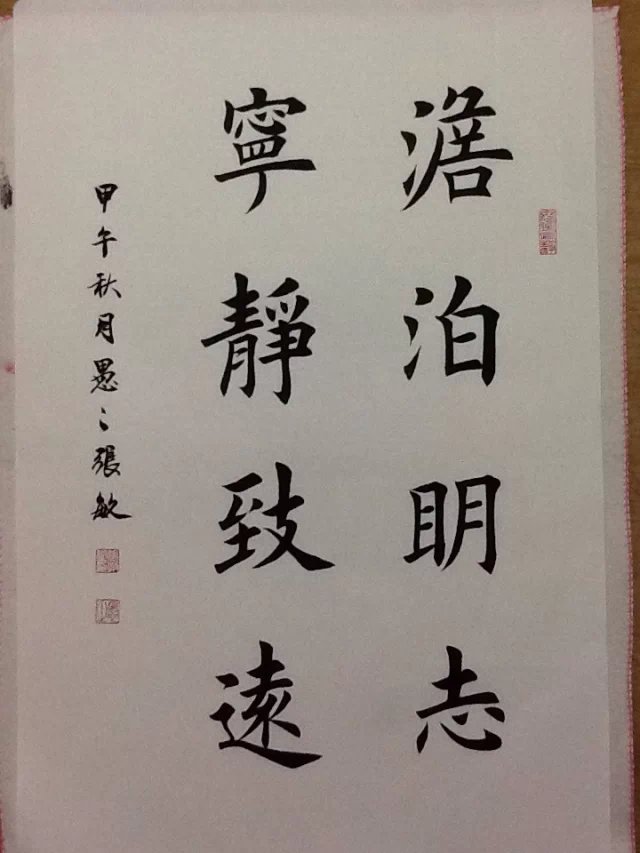 澹泊明志
寧靜致遠
甲午秋月愚〻張敏